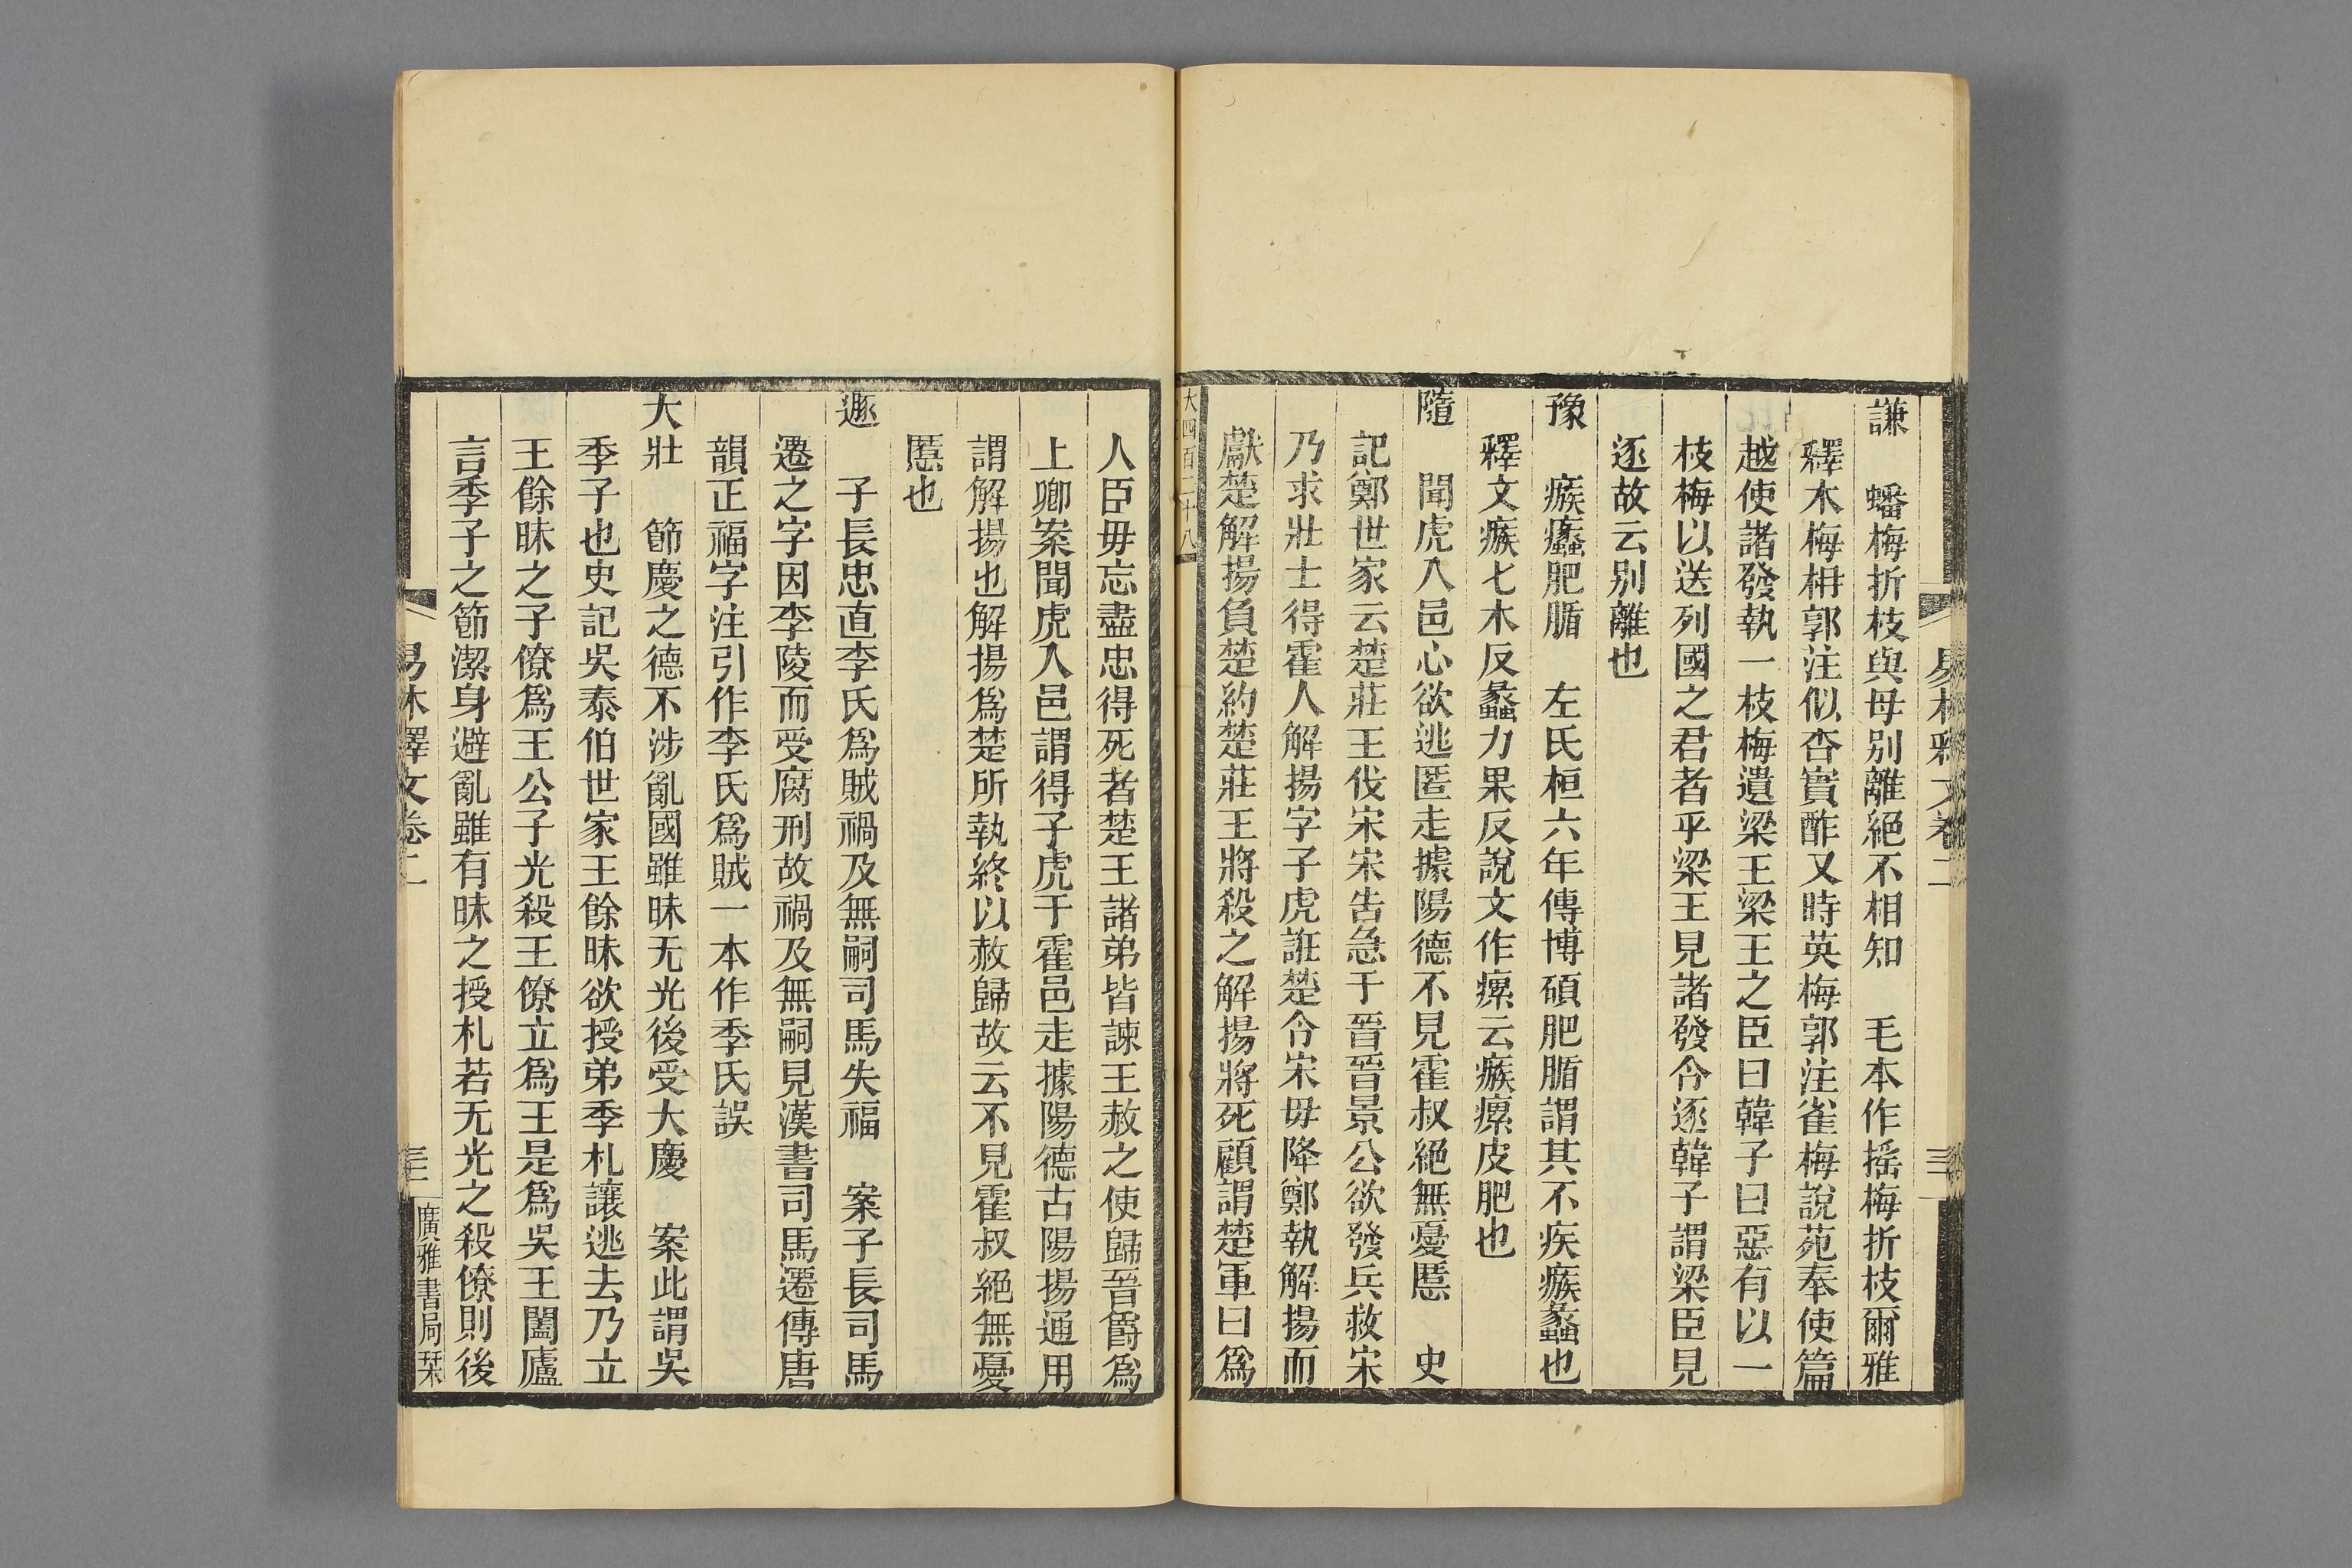 謙　蟠梅折枝與母別離絕不相知　毛本作搖梅折枝爾雅
釋木梅枏郭注似杏實酢又時英梅郭注雀梅說苑奉使篇
越使諸發執一枝梅遺梁王梁王之臣曰韓子曰惡有以一
枝梅以送列國之君者乎梁王見諸發令逐韓子謂梁臣見
逐故云別離也
豫　瘯蠡肥腯　左氏桓六年傳博碩肥腯謂其不疾瘯蠡也
釋文瘯七木反蠡力果反說文作瘰云瘯瘰皮肥也
隨　聞虎入邑心欲逃匿走據陽德不見霍叔絕無憂慝　史
記鄭世家云楚莊王伐宋宋告急于晉晉景公欲發兵救宋
乃求壯士得霍人解揚字子虎誑楚令宋毋降鄭執解揚而
獻楚解揚負楚約楚莊王將殺之解揚將死顧謂楚軍曰爲
大四百二十八
人臣毋忘盡忠得死者楚王諸弟皆諫王赦之使歸晉爵爲
上卿案聞虎入邑謂得子虎于霍邑走據陽德古陽揚通用
謂解揚也解揚爲楚所執終以赦歸故云不見霍叔絕無憂
慝也
遯　子長忠直李氏爲賊禍及無嗣司馬失福　案子長司馬
遷之字因李陵而受腐刑故禍及無嗣見漢書司馬遷傳唐
韻正福字注引作李氏爲賊一本作季氏誤
大壯　節慶之德不涉亂國雖昧无光後受大慶　案此謂吳
季子也史記吳泰伯世家王餘昧欲授弟季札讓逃去乃立
王餘昧之子僚爲王公子光殺王僚立爲王是爲吳王闔廬
言季子之節潔身避亂雖有昧之授札若无光之殺僚則後
易林釋文卷二
三
廣雅書局栞